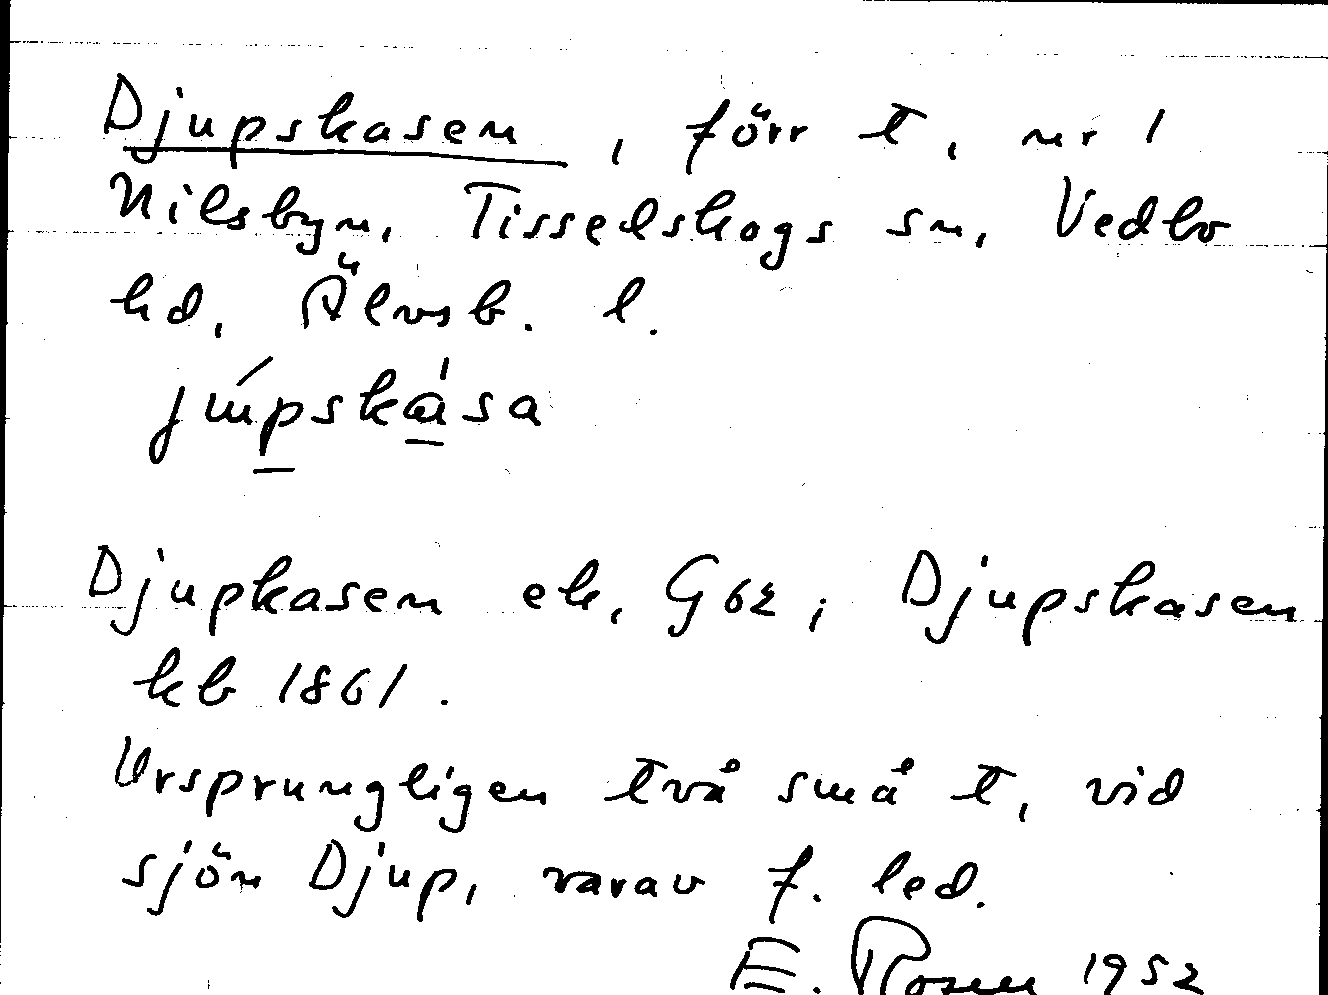 Djupskasen, förr t, nr 1
Nilsbyn, Tisselskogs sn, Vedbo
hd, Älvsb. l.
júpskàsa
Djupkasen ek, G62; Djupskasen
kb 1861.
Ursprungligen två små t, vid
sjön Djup, varav f. led.
E. Rosen 1952